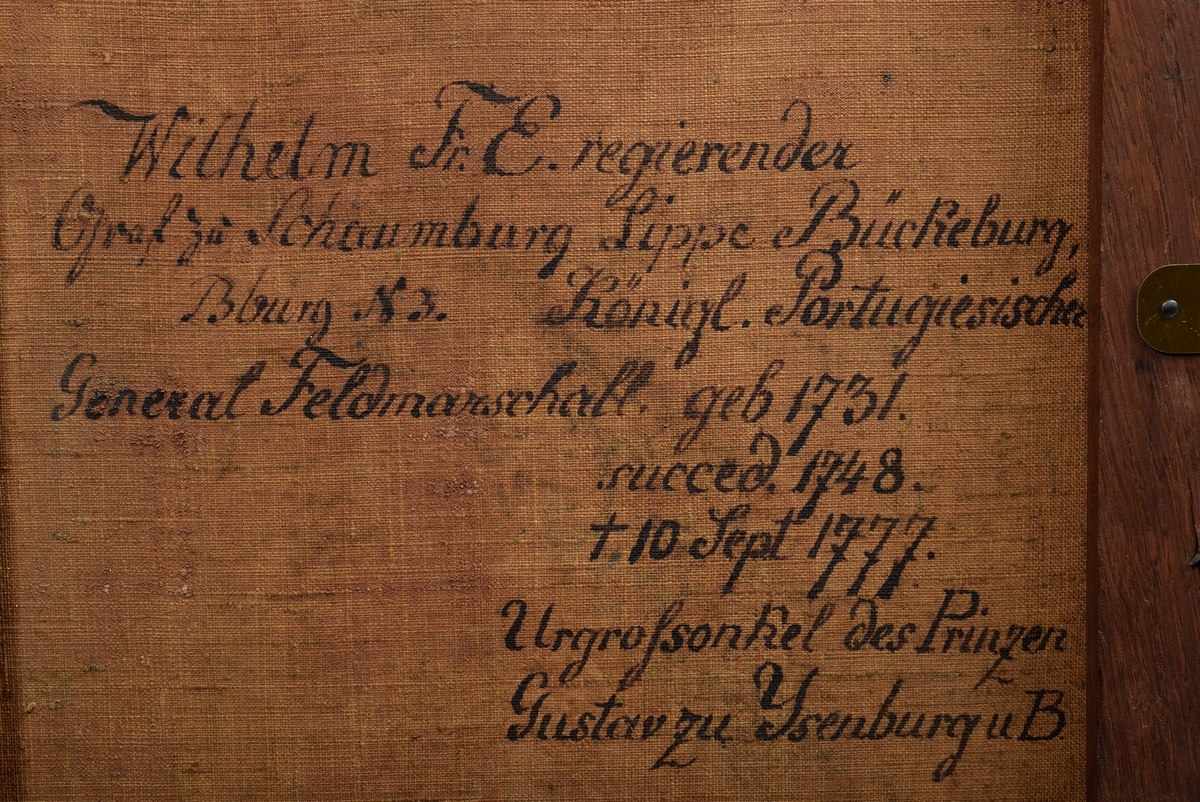 Wilhelm Fr. E. regierender
Graf zu Schaumburg Lippe Bückeburg,
Bburg N 3. Königl. Portugiesischer
General Feldmarschall. geb 1731.
succed. 1748.
†. 10 Sept 1777.
Urgroſsonkel des Prinzen
Gustav zu Ysenburg u B